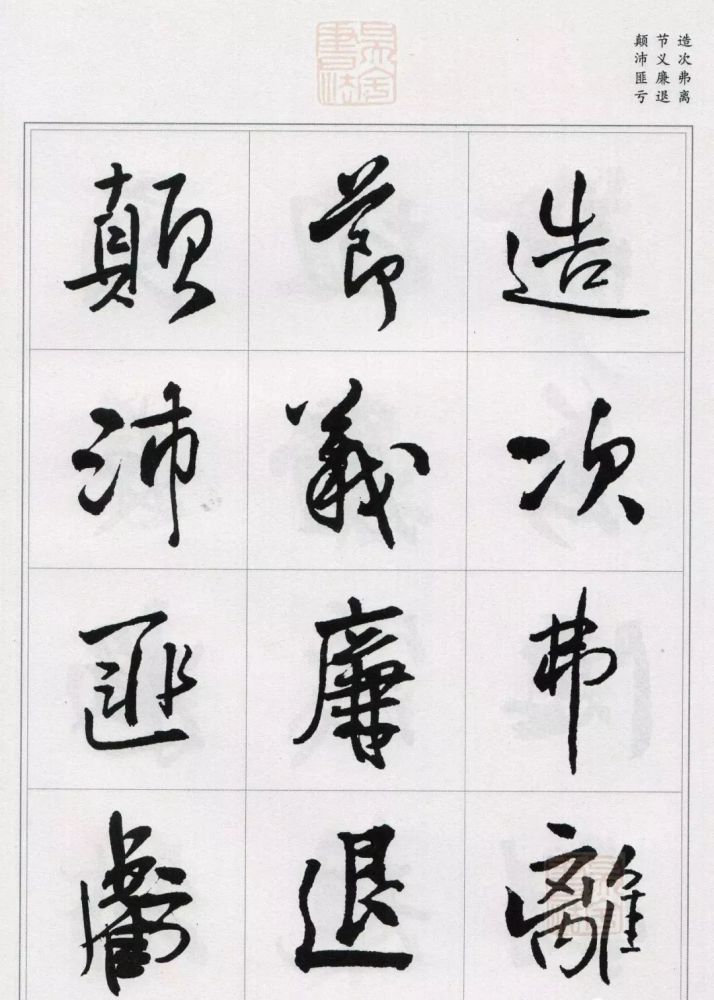 造次弗离
节义廉退
颠沛匪亏
造次弗離
節義廉退
顛沛匪虧